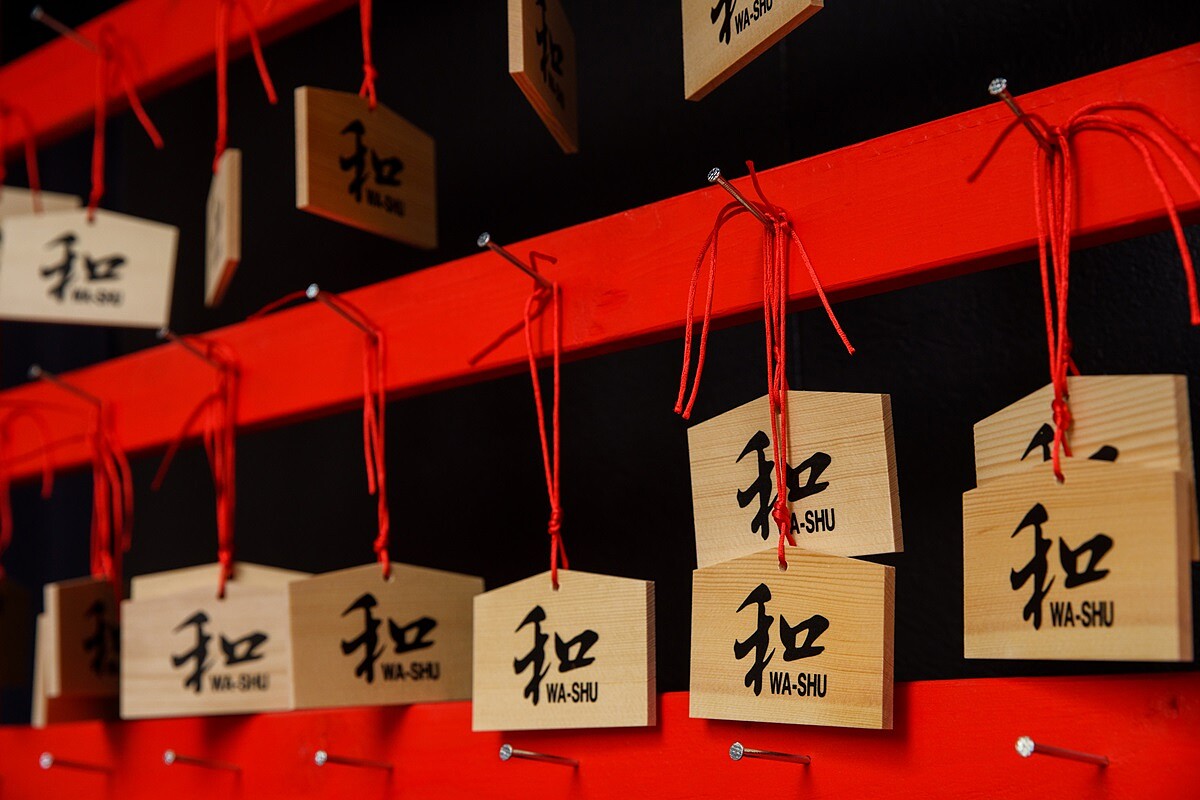 和
WA-SHU
和
WA-SHU
和
WA-SHU
和
A-SHU
和
WA-SHU
和
WA-SHU
和
WA-SHU
和
WA-SHU
和
WA-SHU